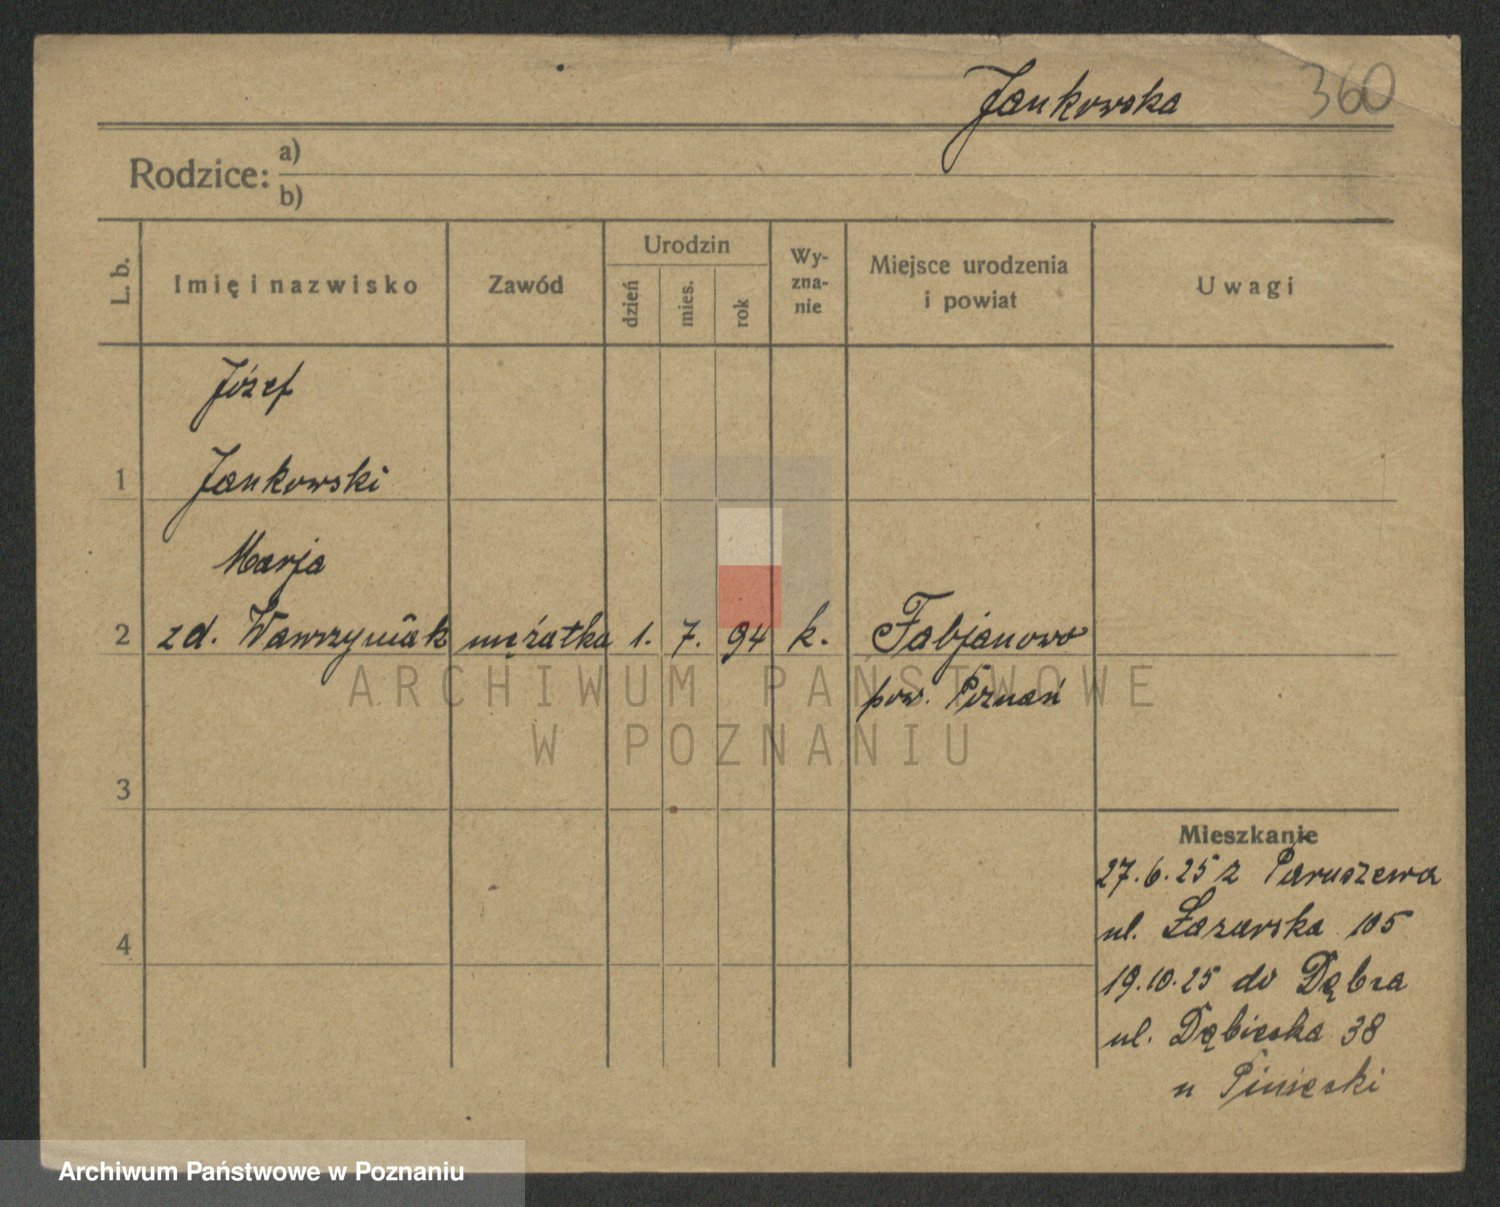 Jankowska 360
Rodzice: a)
b)
L. b. Imię i nazwisko Zawód Urodzin dzień mies. rok Wy-zna-nie Miejsce urodzenia i powiat Uwagi
Józef
1 Jankowski
Marja
2 zd. Wawrzyniak mężatka 1. 7. 94 k. Fabjanowo
pow. Poznań
ARCHIWUM PAŃSTWOWE
W POZNANIU
3
Mieszkanie
27.6.25 z Paruszewa
ul. Łazarska 105
4
19.10.25 do Dębca
ul. Dębiecka 38
u
Archiwum Państwowe w Poznaniu